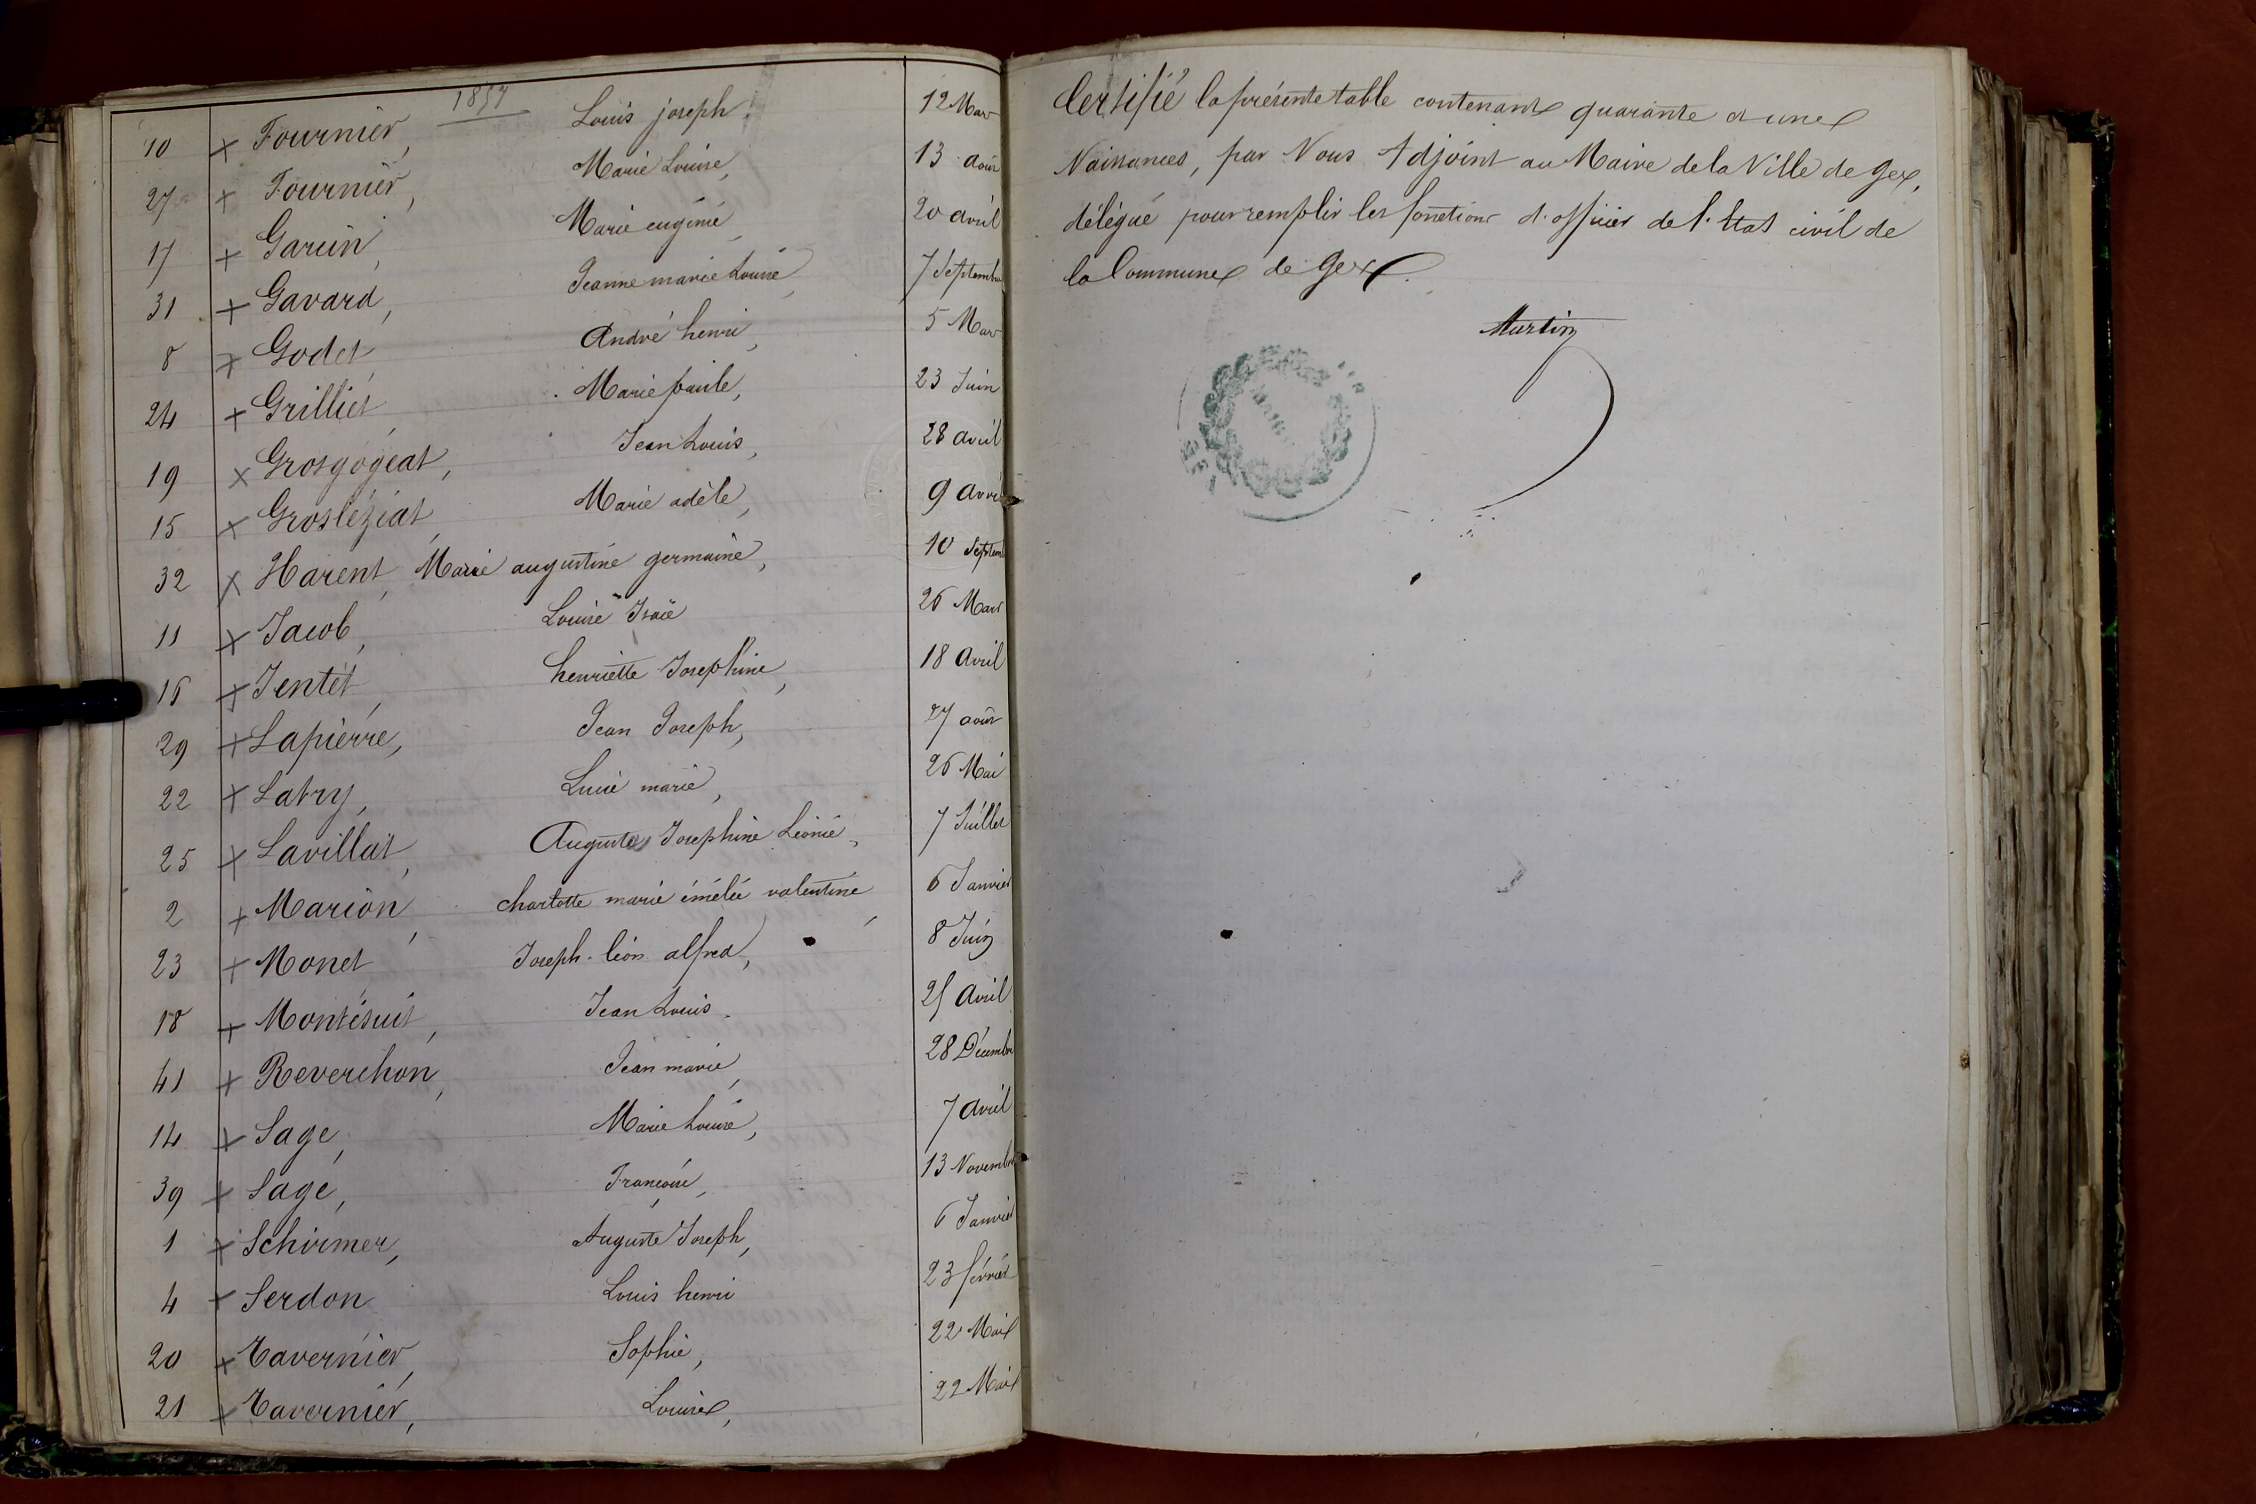 1857
10 x Fournier, Louis joseph. 12 Mars
27 x Fournier, Marie Louise, 13 août
17 x Garcin, Marie eugénie, 20 avril
31 x Gavard, Jeanne marie Louise, 7 Septembre
8 x Godet, André henri, 5 Mars
24 x Grilliet, Marie paule, 23 Juin
19 x Grosgogeat, Jean Louis, 28 avril
15 x Grosléziat, Marie adèle, 9 avril
32 x Harent, Marie augustine germaine, 10 Septemb
11 x Jacob, Louise 26 Mars
16 x Jentet, henriette Josephine, 18 avril
29 x Lapierre, Jean Joseph, 27 août
22 x Latry, Lucie marie, 26 Mai
25 x Lavillat, Auguste Josephine Léonie, 7 Juillet
2 x Marion, charlotte marie émélie valentine, 6 Janvier
23 x Monet, Joseph. léon alfred, 8 Juin
18 x Montésuit, Jean Louis. 25 avril
41 x Reverchon, Jean marie, 28 Décembre
14 x Sage, Marie Louise, 7 avril
39 x Sage, Françoise, 13 Novembre
1 x Schirmer, Auguste Joseph, 6 Janvier
4 x Serdon Louis henri 23 février
20 x Tavernier, Sophie, 22 Mai
21 x Tavernier, Louise, 22 Mai
Certifié la présente table contenant quarante et une
Naissances, par Nous Adjoint au Maire de la Ville de Gex,
délégué pour remplir les fonctions d'officier de l'Etat civil de
la Commune de Gex.
Martin
MAIRIE